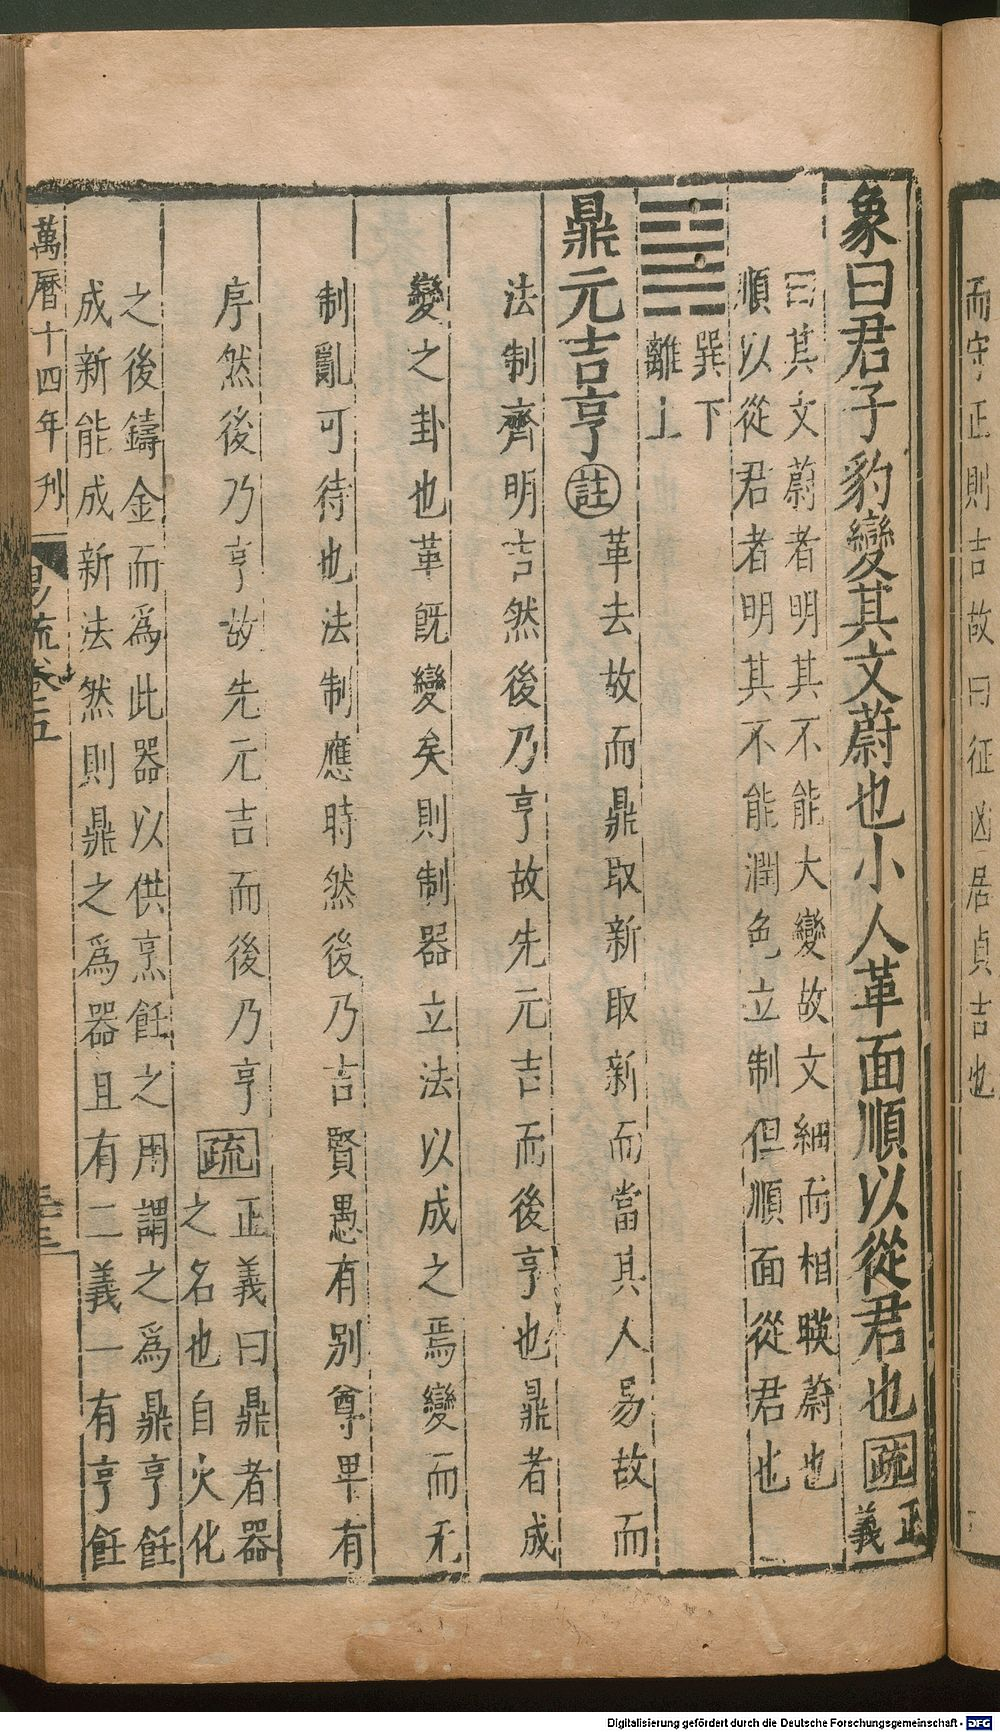 而守正則吉故曰征凶居貞吉也
象曰君子豹變其文蔚也小人革面順以從君也疏正義
曰其文蔚者明其不能大變故文細而相暎蔚也
順以從君者明其不能潤色立制但順面從君也
巽下
離上
鼎元吉亨註革去故而鼎取新取新而當其人易故而
法制齊明吉然後乃亨故先元吉而後亨也鼎者成
變之卦也革既變矣則制器立法以成之焉變而无
制亂可待也法制應時然後乃吉賢愚有别尊卑有
序然後乃亨故先元吉而後乃亨疏正義曰鼎者器
之名也自火化
之後鑄金而爲此器以供烹飪之用謂之爲鼎亨飪
成新能成新法然則鼎之爲器且有二義一有亨飪
萬曆十四年刋
易疏卷五
Digitalisierung gefördert durch die Deutsche Forschungsgemeinschaft - DFG